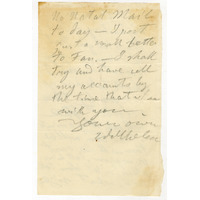 No Natal Mail
to day — I post
just a small letter
to Fan. — I shall
try and have all
my accounts by
the time that is
with you
Your own